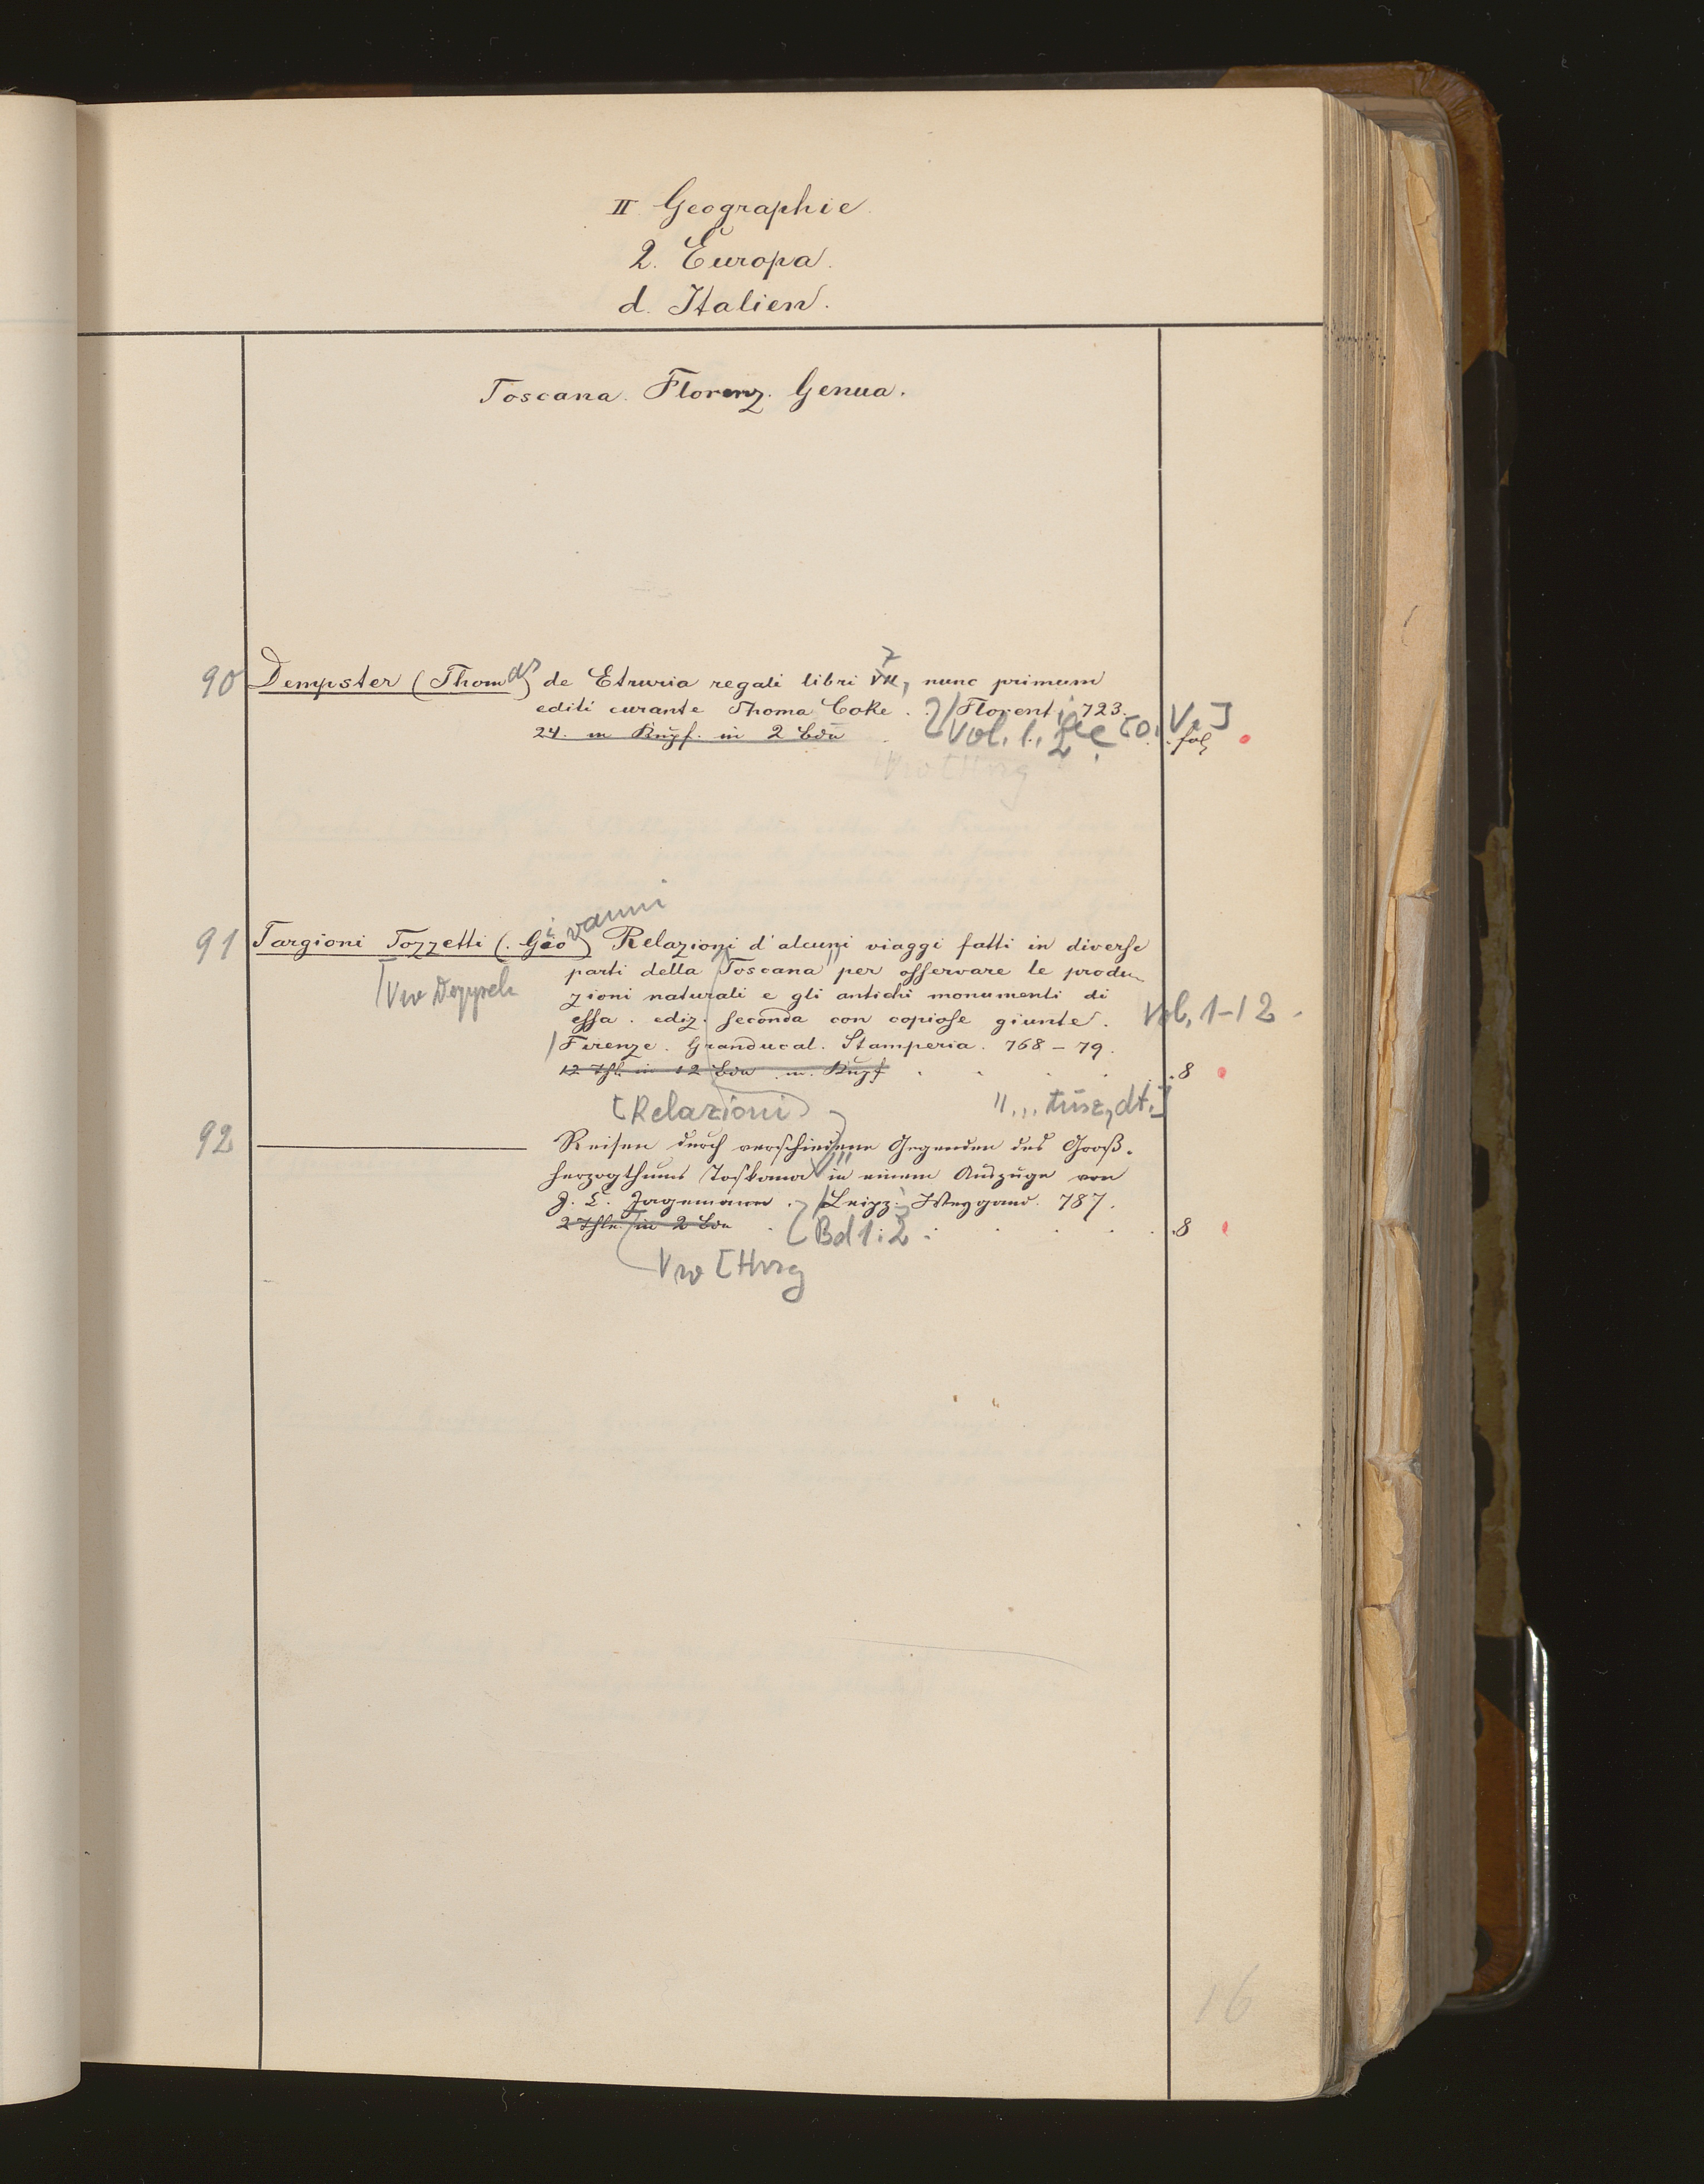 II Geographie
2. Europa.
d. Italien.
Toscana. Florenz. Genua.
7
90 Dempster (Thomas) de Etruria regali libri VII, nunc primum
editi curante Thoma Coke. Florent 723.
24. m Kupf. in 2 Bdn Vol. 1. 2 fol
Vw [Hrsg
vanni
91 Targioni Tozzetti (Gio) Relazioni d'alcuni viaggi fatti in diverse
Vw Doppel parti della Toscana per osservare le produ-
zioni naturali e gli antichi monumenti di
essa. ediz. seconda con copiose giunte. Vol. 1-12
Firenze. Granducal. Stamperia. 768-79.
12 Thl. in 12 Bdn m. Kupf 8
[Relazioni] ", ... Ausz, dt.]
92 Reisen durch verschiedene Gegenden des Groß-
herzogthums Toskana in einem Auszuge von
J. C. Jagemann. Leipz. Weygand. 787.
2 Thle. in 2 Bdn [Bd 1. 2. 8
Vw [Hrsg
16